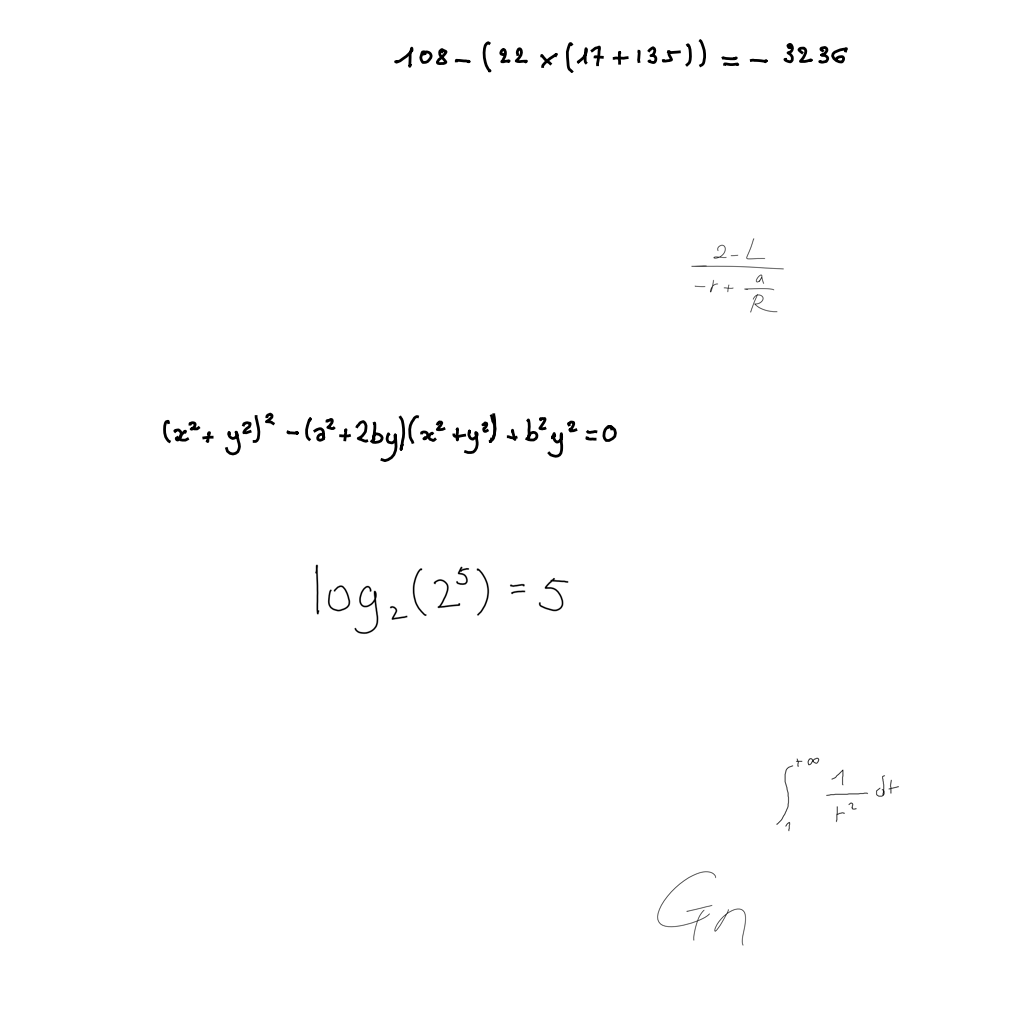 108 - (22 × (17 + 135)) = - 3236
\frac{2 - L}{-r + \frac{a}{R}}
(x² + y²)² - (a² + 2by)(x² + y²) + b²y² = 0
log₂(2⁵) = 5
\int_{1}^{+\infty} \frac{1}{t^2} dt
Gn